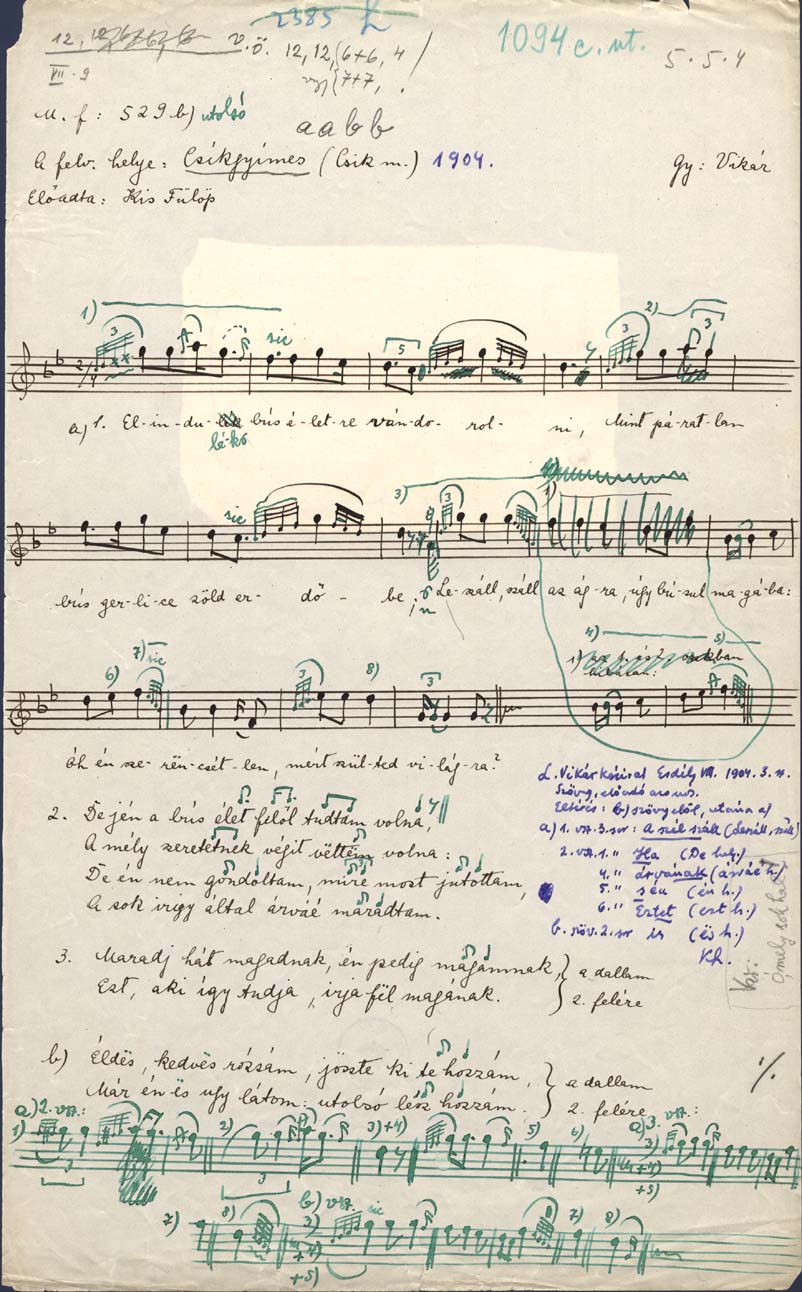 2385 L
12, 12
V.Ö. 12, 12, 6+6, 4
vagy 7+7,
1094 c. ut.
5. 5. 4
VII. 9
M. f: 529 b) utolsó
a a b b
A felv. helye: Csíkgyímes (Csik m.) 1904.
Gy: Vikár
Előadta: Kis Fülöp
1) 3 sic 5 2) 3 3
2/4
a) 1. El-in-du- bús é-let-re ván-do- rol- ni, Mint pá-rat-lan
lé-kó
sic 3) 3 1)
bús ger-li-ce zöld er- dő- be; Le-száll, száll az ág-ra, úgy bú-sul ma-gá-ba:
6) 7) sic 3 8) 3 4) 5)
óh én sze-rën-csét-len, mért szül-ted vi-lág-ra?
2. De jén a bús élet felől tudtam volna,
A mély szeretetnek végit vëttëm volna:
De én nem gondoltam, mire most jutottam,
A sok irigy által árváé maradtam.
L. Vikár kézirat Erdély VII. 1904. 3. sz.
Szöveg, előadó azonos.
Eltérés: b) szöveg elől, utána a)
a) 1. vsz. 3. sor: A szél száll (Leszáll, száll)
2. vsz. 1. " Ha (De hely.)
4. " árvának (árváé h.)
5. " s én (én h.)
6. " Eztet (ezt h.)
b. szöv. 2. sor is (és h.)
Var:
Ó mely sok hal
3. Maradj hát magadnak, én pedig magamnak,
Ezt, aki így tudja, irja fël magának.
a dallam
2. felére
b) Éldës, kedvës rózsám, jöszte ki te hozzám,
Már én és ugy látom: utolsó lész hozzám.
a dallam
2. felére
·/.
a) 2. vsz.:
1) 3 2) 3 3)+4) 5) 6)
a) 3. vsz.:
3)
+4)
+5)
7) 8)
b) vsz. sic
3)
+4)
+5)
7) 8)